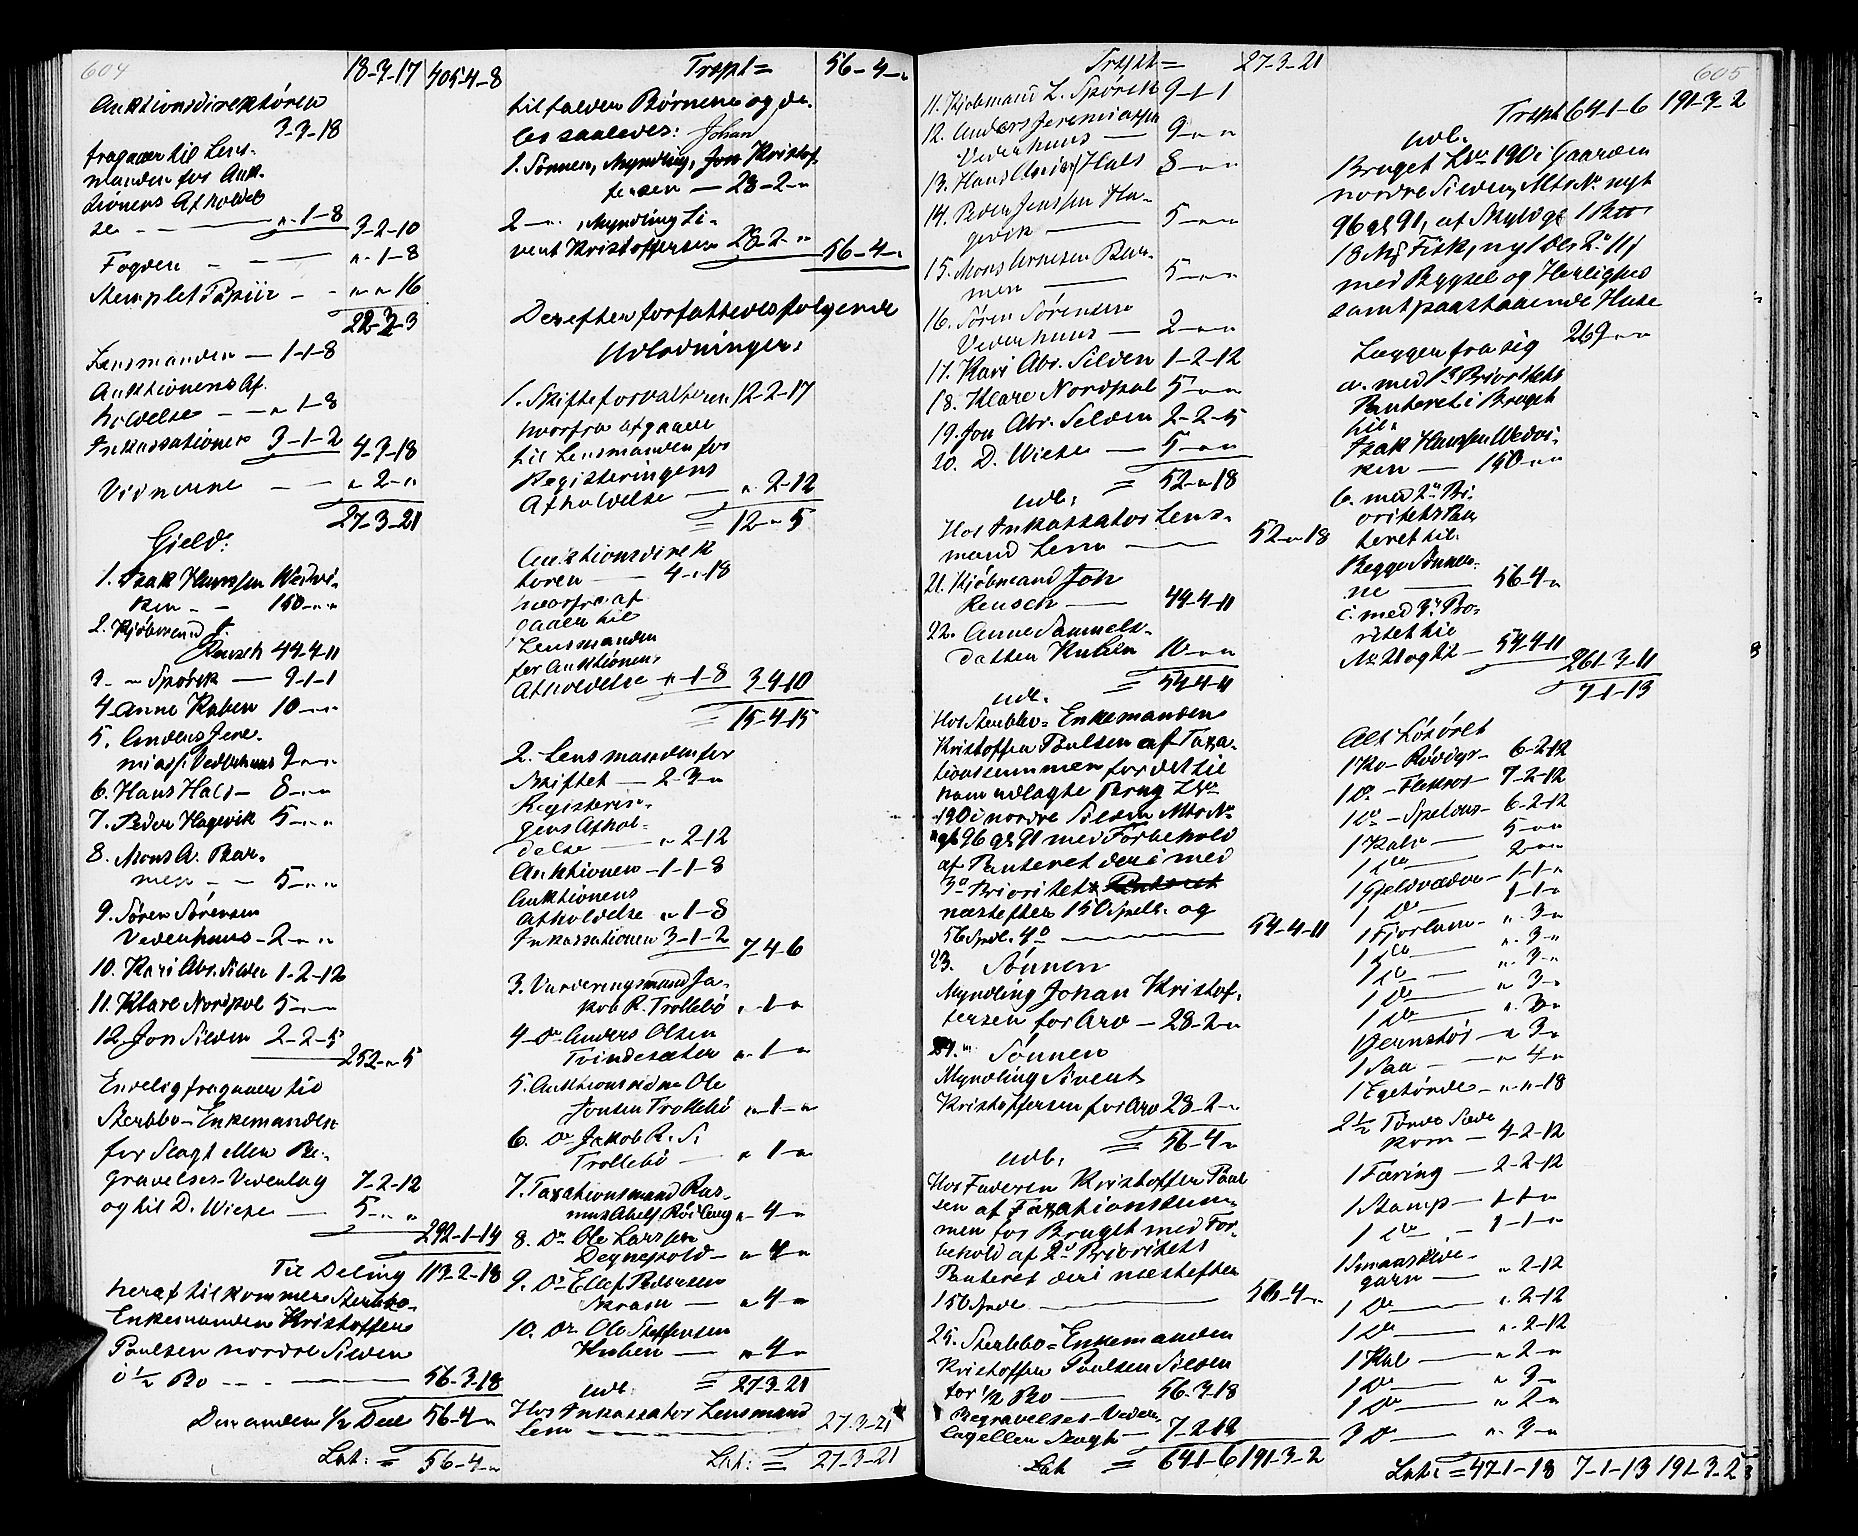 604
18-3-17 405-4-8
Auktionsdirektøren
3-3-18
fragaaer til Lens-
manden for Auk-
tionens Afholdel-
se - - „-1-8 3-2-10
Fogden - - „-1-8
Stemplet Papiir - - „-„-16
22-3-3
Lensmanden - 1-1-8
Auktionens Af-
holdelse - - „-1-8
Inkassationen 3-1-2 4-3-18
Vidnerne - - „-2-„
27-3-21
Gield:
1. Isak Hanssen Wedvi-
ken - - 150-„-„
2. Kjøbmand J.
Reusch 44-4-11
3. - „ Spørck - 9-1-1
4. Anne Kuben 10-„-„
5. Anders Jere-
miass. Vederhuus 9-„-„
6. Hans Hals - 8-„-„
7. Peder Hagevik 5-„-„
8. Mons A. Bar-
men - - 5-„-„
9. Søren Sørensen
Vederhuus - 2-„-„
10. Kari Abr. Silden 1-2-12
11. Klare Nordpol 5-„-„
12. Jon Silden 2-2-5
252-„-5
Endelig fragaaer til
Sterbbo-Enkemanden
for Slagt eller Be-
gravelses-Vederlag 7-2-12
og til D. Wiese - 5-„-„
292-1-14
Til Deling 113-2-18
heraf tilkommer Sterbbo-
Enkemanden Kristoffer
Paulsen nordre Silden
i ½ Bo - - - 56-3-18
Den anden ½ Deel 56-4-„
Lat: = 56-4-„
Trspt = 56-4-„
tilfalder Børnene og de-
les saaledes: Johan
1. Sønnen, Myndling, Jon Kristof-
fersen - 28-2-„
2. - „ Myndling Si-
vert Kristoffersen 28-2-„ 56-4-„
Derefter forfattedes følgende
Udlodninger:
1. Skifteforvalteren 12-2-17
hvorfra afgaaer
til Lensmanden for
Registreringens
Afholdelse - „-2-12
= 12-„-5
Auktionsdirek-
tøren - 4-„-18
hvorfra af-
gaaer til
Lensmanden
for Auktionens
Afholdelse „-1-8 3-4-10
= 15-4-15
2. Lensmanden for
Skiftet - 2-3-„
Registerin-
gens Afhol-
delse - „-2-12
Auktionen - 1-1-8
Auktionens
Afholdelse „-1-8
Inkassationen 3-1-2 7-4-6
3. Vurderingsmand Ja-
kob R. Trollebø „-1-„
4. Do Anders Olsen
Tvindesæter „-1-„
5. Auktionsvidne Ole
Jonsen Trollebø „-1-„
6. Do Jakob R. S.
Trollebø - „-1-„
7. Taxationsmand Ras-
mus Abels. Røisberg „-4-„
8. Do Ole Larssen
Degnepold - „-4-„
9. Do Ellef Pedersen
Skram - „-4-„
10. Do Ole Steffensen
Kuben - „-4-„
udl. = 27-3-21
Hos Inkassator Lensmand
Lem - 27-3-21
Lat: = 27-3-21
Trspt = 27-3-21
11. Kjøbmand L. Spørck 9-1-1
12. Anders Jeremiassen
Vederhuus - 9-„-„
13. Hans Hals 8-„-„
14. Peder Jenssen Ha-
gevik - 5-„-„
15. Mons Arnesen Bar-
men - 5-„-„
16. Søren Sørensen
Vederhuus - 2-„-„
17. Kari Abr. Silden 1-2-12
18. Klare Nordpol 5-„-„
19. Jon Abr. Silden 2-2-5
20. D. Wiese - 5-„-„
= 52-„-18
udl:
Hos Inkassator Lens-
mand Lem - 52-„-18
21. Kjøbmand Joh
Reusch - 44-4-11
22. Anne Samuels-
datter Kuben 10-„-„
= 54-4-11
udl.
Hos Sterbbo-Enkemanden
Kristoffer Paulsen af Taxa-
tionssummen for det til
ham udlagte Brug Lno
190 i nordre Silden Mtr No
nyt 96 gl 91 med Forbehold
af Panteret deri med
3die Prioritets Panteret
næstefter 150 Spdlr. og
56 Spdlr. 4 - 54-4-11
23. Sønnen
Myndling Johan Kristof-
fersen for Arv - 28-2-„
24. Sønnen
Myndling Sivert
Kristoffersen for Arv 28-2-„
= 56-4-„
udl.
Hos Faderen Kristoffer Paul-
sen af Taxationssum-
men for Bruget med For-
behold af 2den Prioritets
Panteret deri næstefter
150 Spdlr. - 56-4-„
25. Sterbbo-Enkemanden
Kristoffer Paulsen Silden
for ½ Bo - 56-3-18
Begravelses-Veder-
lag eller Slagt - 7-2-12
Lat = 64-1-6 191-3-2
605
Trspt 64-1-6 191-3-2
udl.
Bruget Lno 190 i Gaarden
nordre Silden, Mtr No nyt
96 gl 91, af Skyld gl
18 Mrk Fisk, ny
med Bygsel og Herlighed
samt paastaaende Huse
269-„-„
Lægger fra sig
a. med 1ste Prioritets
Panteret i Bruget
til
Isak Hanssen Wedvi-
ken - 150-„-„
b. med 2den Pri-
oritets Pan-
teret til
Begge Sønner-
ne - 56-4-„
c. med 3die Prio-
ritet til
No 21 og 22 - 54-4-11
261-3-11
7-1-13
Alt Løsøret
1 Ko - Rødøps - 6-2-12
1 Do - Flekros - 7-2-12
1 Do - Spelros - 6-2-12
1 Kalv - 5-„-„
1 Do - 2-„-„
1 Gjeldvæder - 1-1-„
1 Do - 1-1-„
1 Fjorlam - „-3-„
1 Do - „-3-„
1 Do - „-3-„
1 Do - „-3-„
1 Do - „-3-„
1 Jernstør - „-3-„
1 Saa - „-4-„
1 Egetønde - „-„-18
2½ Tønde Sæde
korn - 4-2-12
1 Færing - 2-2-12
1 Stamp - 1-1-„
1 Do - 1-1-„
1 Smaasilde-
garn - „-2-12
1 Do - „-2-12
1 Do - „-2-12
1 Kar - „-2-„
1 Do - „-3-„
1 Do - „-2-„
3 Do - „-3-„
Lat: = 47-1-18 7-1-13 191-3-2